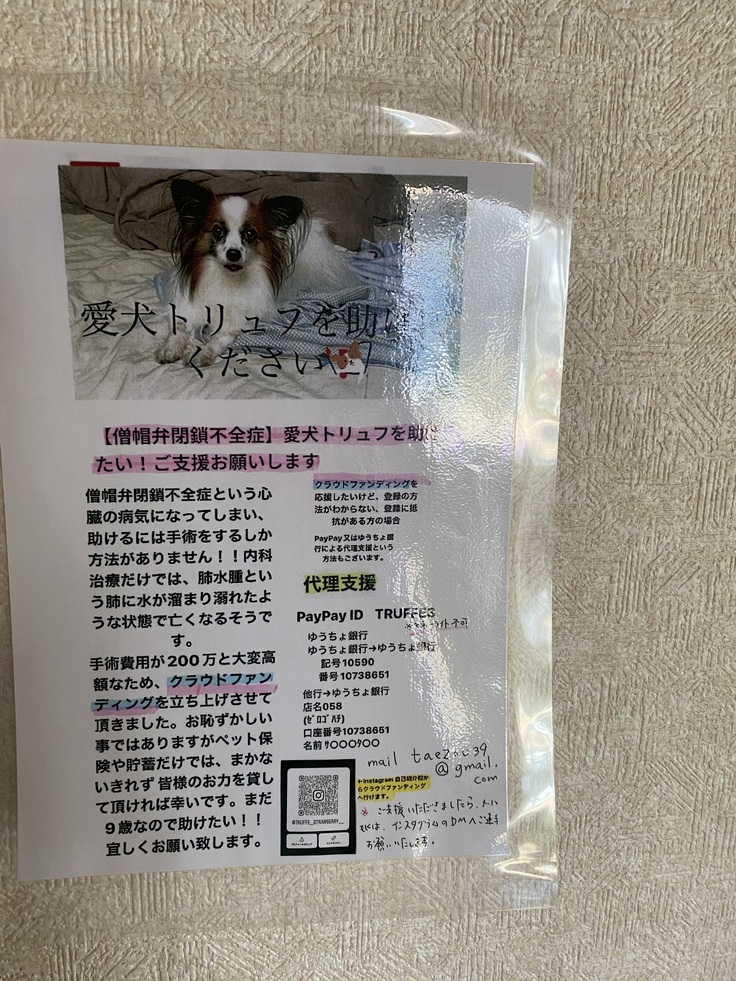 愛犬トリュフを助け
ください
【僧帽弁閉鎖不全症】愛犬トリュフを助け
たい！ご支援お願いします
僧帽弁閉鎖不全症という心
臓の病気になってしまい、
助けるには手術をするしか
方法がありません！！内科
治療だけでは、肺水腫とい
う肺に水が溜まり溺れたよ
うな状態で亡くなるそうで
す。
手術費用が200万と大変高
額なため、クラウドファン
ディングを立ち上げさせて
頂きました。お恥ずかしい
事ではありますがペット保
険や貯蓄だけでは、まかな
いきれず 皆様のお力を貸し
て頂ければ幸いです。まだ
９歳なので助けたい！！
宜しくお願い致します。
クラウドファンディングを
応援したいけど、登録の方
法がわからない、登録に抵
抗がある方の場合
PayPay又はゆうちょ銀
行による代理支援という
方法もございます。
代理支援
PayPay ID TRUFFES
ゆうちょ銀行
ゆうちょ銀行→ゆうちょ銀行
記号10590
番号10738651
他行→ゆうちょ銀行
店名058
(ｾﾞﾛｺﾞﾊﾁ)
口座番号10738651
名前 ｻ〇〇〇ｸ〇〇
mail
@gmail.
com
@TRUFFE_STRAWBERRY__
←Instagram 自己紹介欄か
らクラウドファンディング
へ行けます。
※ ご支援いただきましたら、メール
もしくは、インスタグラムのDMへご連絡
お願いいたします。